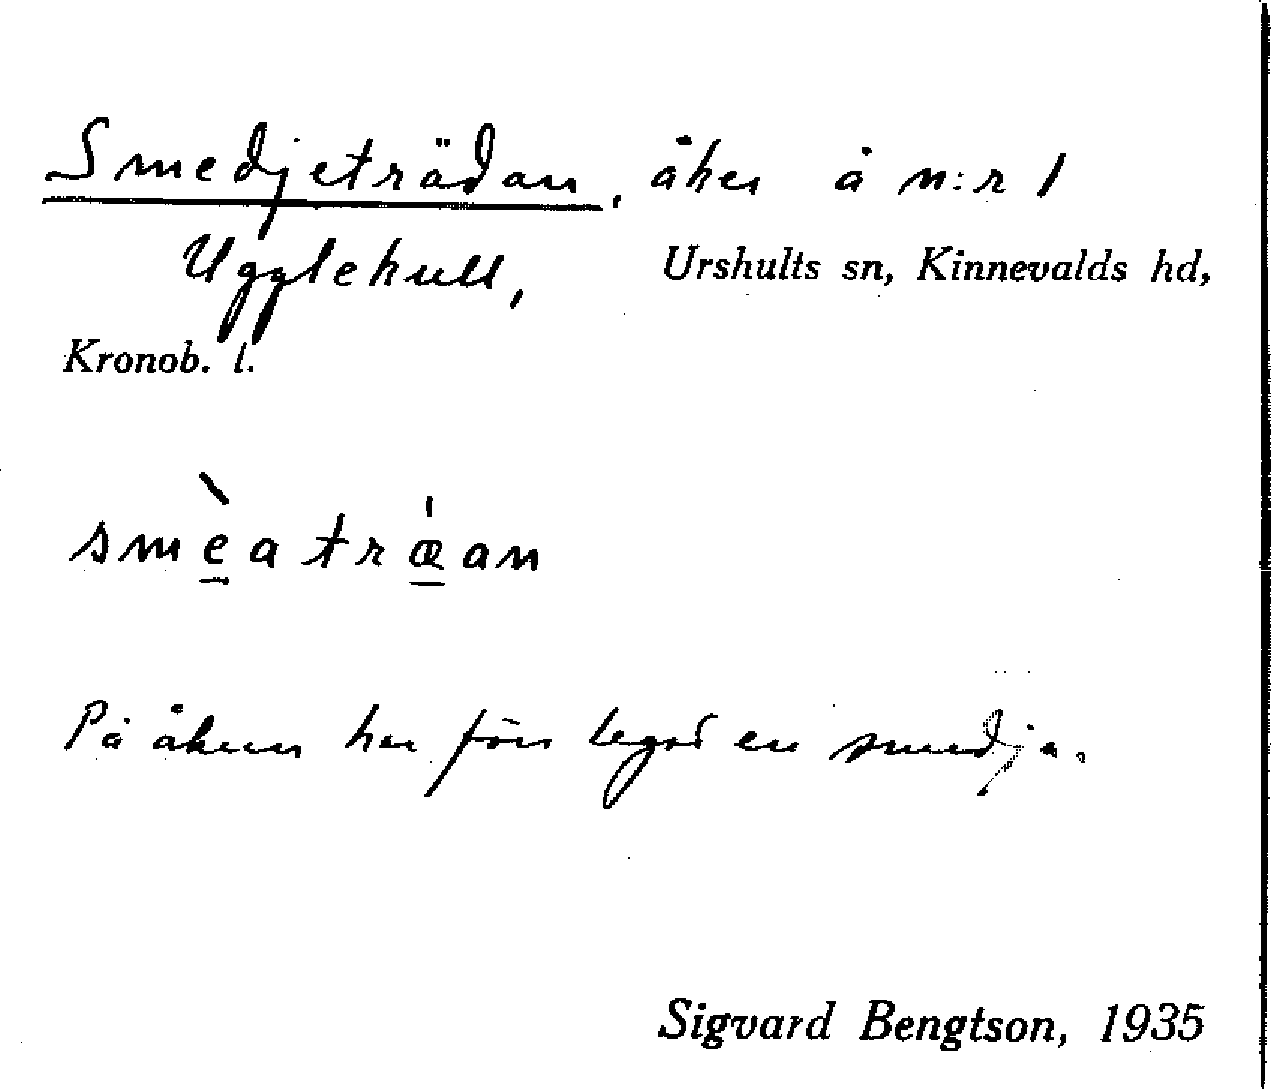 Smedjeträdan, åker å n:r 1
Ugglehull, Urshults sn, Kinnevalds hd,
Kronob. l.
smèatræ̍an
På åkern har förr legat en smedja.
Sigvard Bengtson, 1935